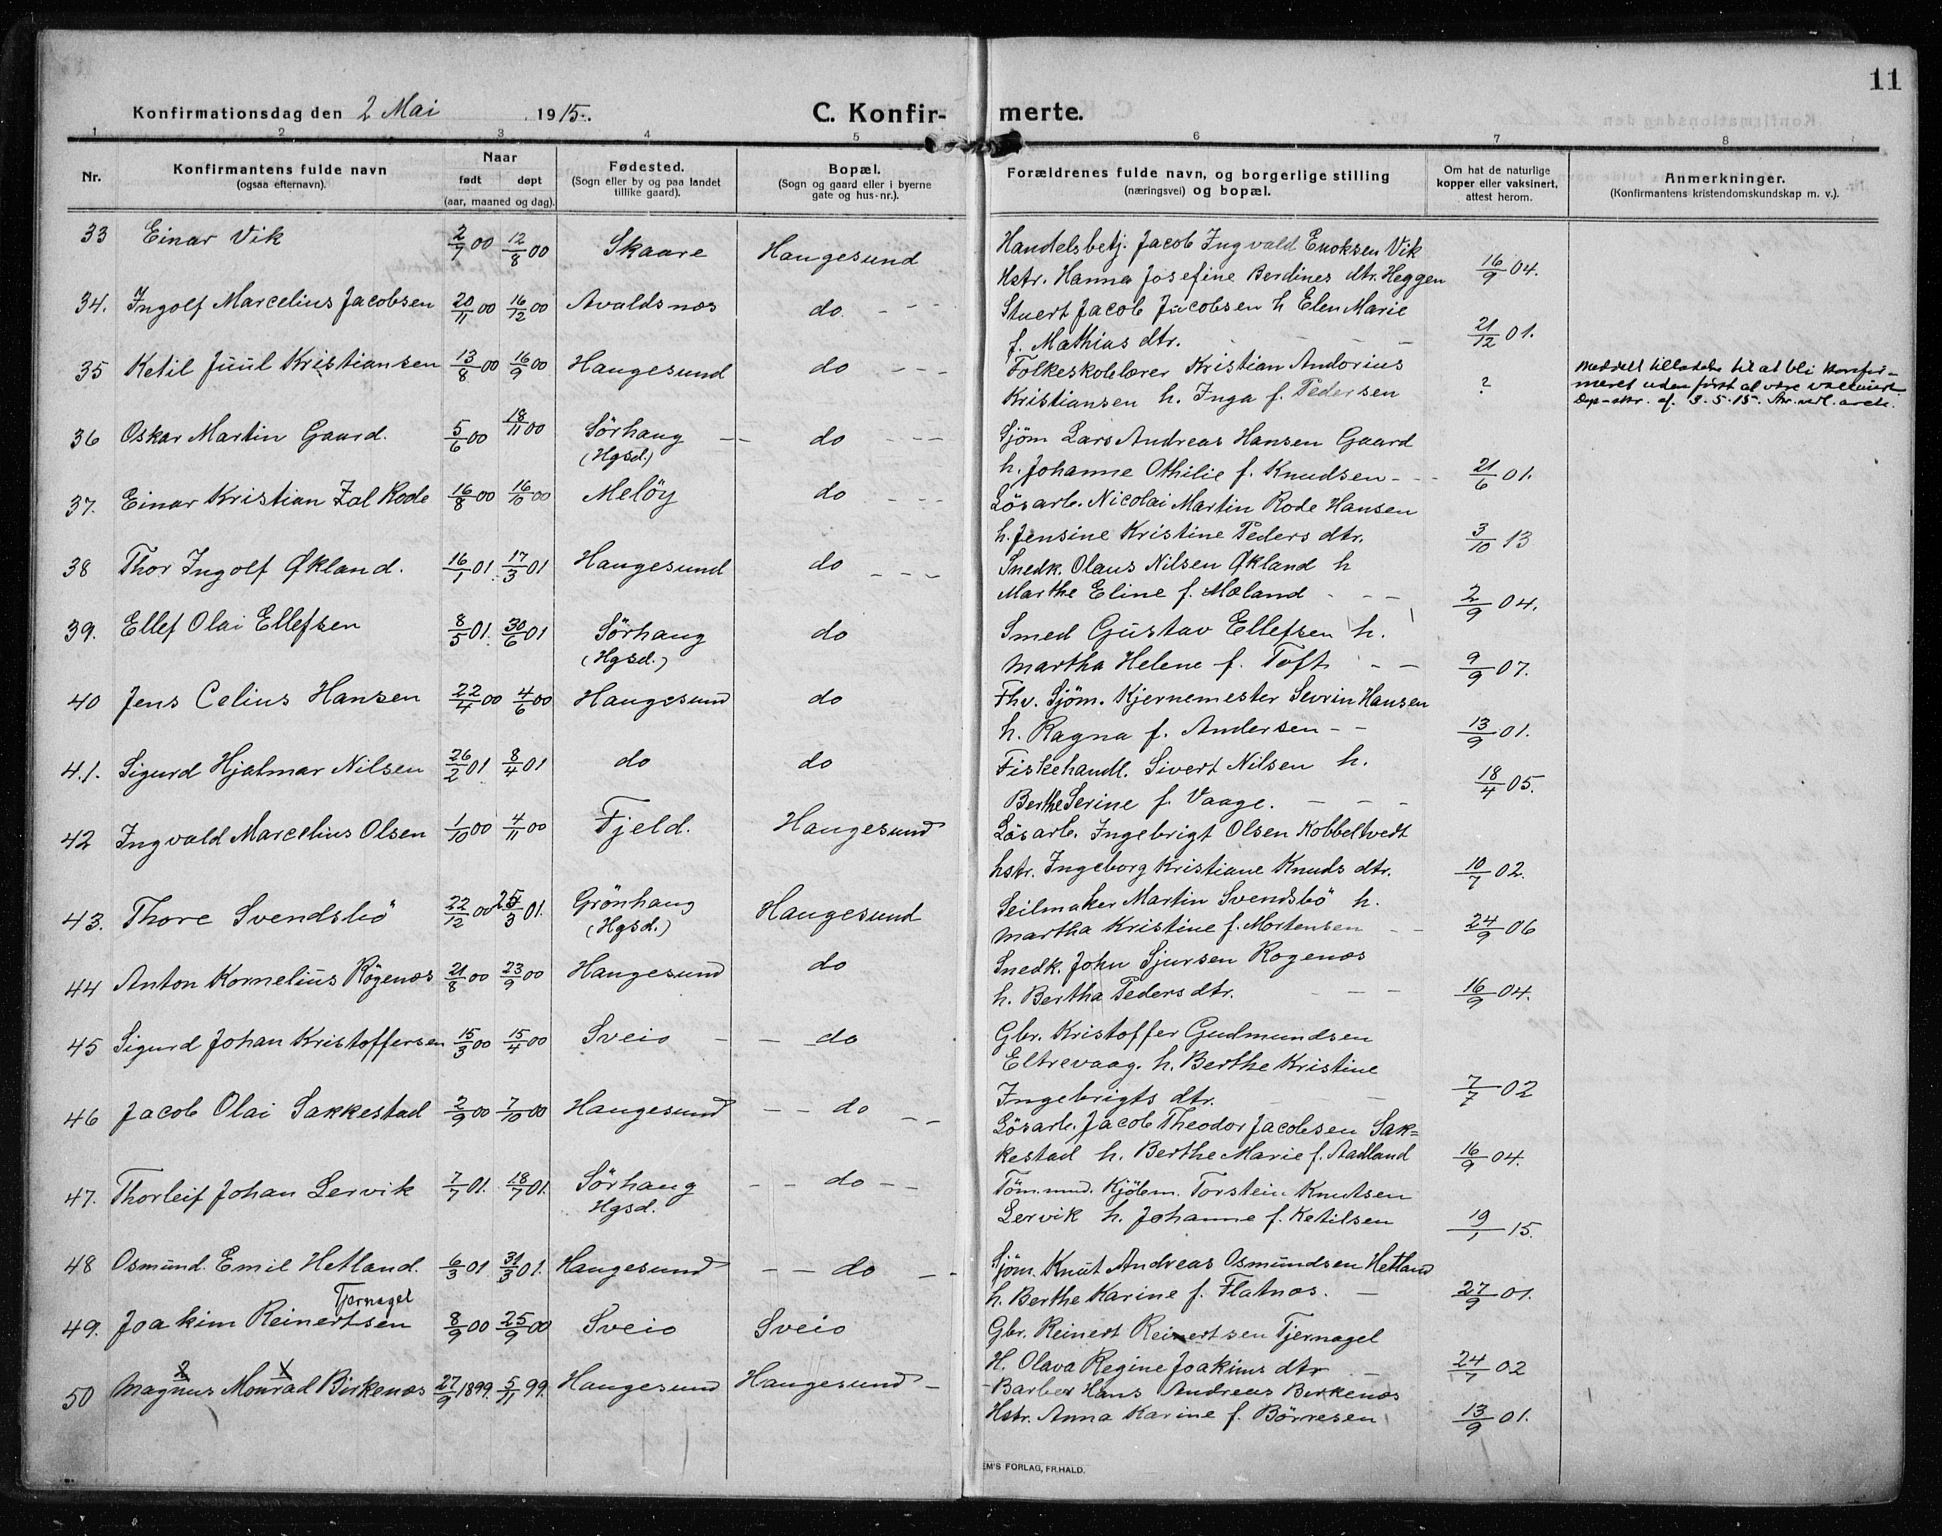 11
Konfirmationsdag den 2 Mai 1915. C. Konfirmerte.
1 2 3 4 5 6 7 8
Nr. Konfirmantens fulde navn (ogsaa efternavn). Naar født døpt (aar, maaned og dag). Fødested. (Sogn eller by og paa landet tillike gaard). Bopæl. (Sogn og gaard eller i byerne gate og hus-nr.). Forældrenes fulde navn, og borgerlige stilling (næringsvei) og bopæl. Om hat de naturlige kopper eller vaksinert, attest herom. Anmerkninger. (Konfirmantens kristendomskundskap m. v.).
33 Einar Vik 2/7 00 12/8 00 Skaare Haugesund Handelsbetj. Jacob Ingvald Enoksen Vik
Hstr. Hanna Josefine Berdines dtr. Heggen 16/9 04.
34. Ingolf Marcelius Jacobsen 20/11 00 16/12 00 Avaldsnæs do. Stuert Jacob Jacobsen h Elen Marie
f. Mathias dtr. 21/12 01.
35 Ketil Juul Kristiansen 13/8 00 16/9 00 Haugesund do Folkeskolelærer Kristian Andorius
Kristiansen h. Inga f. Pedersen ? Meddelt tilladelse til at bli konfir-
meret uden først at være vaccinert
Dep-skr. af 3.5.15.
36 Oskar Martin Gaard. 5/6 00 18/11 00 Sörhaug (Hgsd.) do Sjöm Lars Andreas Hansen Gaard
h. Johanne Othilie f. Knudsen 21/6 01.
37. Einar Kristian Zal Rode 16/8 00 16/10 00 Melöy do Lösarb. Nicolai Martin Rode Hansen
h. Jensine Kristine Peders dtr. 3/10 13
38 Thor Ingolf Økland. 16/1 01. 17/3 01 Haugesund do Snedk. Olaus Nilsen Økland h
Marthe Eline f. Mæland 2/9 04.
39. Ellef Olai Ellefsen 8/5 01. 30/6 01 Sörhaug (Hgsd.) do Smed Gustav Ellefsen h.
Martha Helene f. Toft 9/9 07.
40 Jens Celius Hansen 22/4 00 4/6 00 Haugesund do Fhv. Sjöm. Kjernemester Sevrin Hansen
h. Ragna f. Andersen 13/9 01.
41. Sigurd Hjalmar Nilsen 26/2 01 8/4 01 do do Fiskehandl. Sivert Nilsen h.
Berthe Serine f. Vaage. 18/4 05.
42 Ingvald Marcelius Olsen 1/10 00 4/11 00 Fjeld. Haugesund Lösarb. Ingebrigt Olsen Kobbeltvedt
hstr. Ingeborg Kristiane Knuds dtr. 10/7 02.
43. Thore Svendsbö 22/12 00 25/3 01. Grönhaug (Hgsd.) Haugesund Seilmaker Martin Svendsbö h.
Martha Kristine f. Mortensen 24/9 06
44 Anton Kornelius Rögenæs 21/8 00 23/9 00 Haugesund do Snedk. John Sjursen Rogenæs
h. Bertha Peders dtr. 16/9 04.
45 Sigurd Johan Kristoffersen 15/3 00 15/4 00 Sveio do Gbr. Kristoffer Gudmundsen
Eltrevaag. h. Berthe Kristine
Ingebrigts dtr. 7/7 02
46 Jacob Olai Sakkestad 2/9 00 7/10 00 Haugesund do Lösarb. Jacob Theodor Jacobsen Sak-
kestad h. Berthe Marie f. Aadland 16/9 04.
47. Thorleif Johan Lervik 7/7 01. 18/7 01. Sörhaug Hgsd. do Töm. mnd. Kjöbm. Torstein Knutsen
Lervik h. Johanne f. Ketilsen 19/1 15.
48 Osmund. Emil Hetland. 6/3 01 31/3 01. Haugesund do Sjöm. Knut Andreas Osmundsen Hetland
h. Berthe Karine f. Flatnæs. 27/9 01.
Tjernagel
49. Joakim Reinertsen 8/9 00 25/9 00 Sveio Sveio Gbr. Reinert Reinertsen Tjernagel
H. Olava Regine Joakims dtr 24/7 02
50 Magnus Monrad Birkenæs 27/9 1899. 5/11 99. Haugesund Haugesund Barber Hans Andreas Berkenæs
Hstr. Anna Karine f. Börresen 13/9 01.
EM'S FORLAG, FR.HALD.